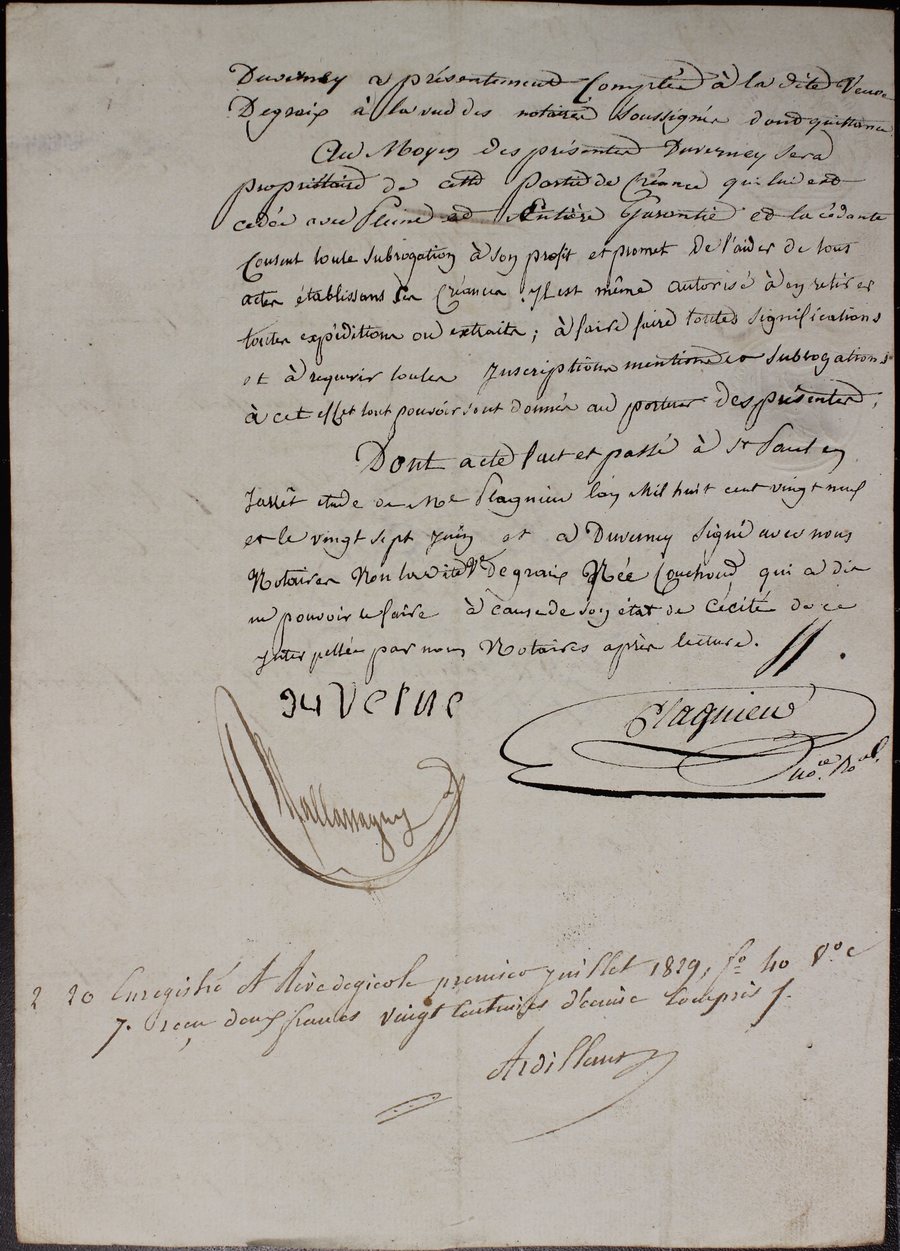 Duverney a présentement Comptée à la dite Veuve
Degraix à la vue des notaires soussignés dont quittance.
Au Moyen des présentes Duverney sera
propriettaire de cette partie de Créance qui lui est
cedée avec Pleine et Entière Garentie et la cédante
Consent toute subrogation à son profit et promet de l'aider de tous
actes établissans sa Créance. Il est même autorisé à en retirer
toutes expéditions ou extraits; à faire faire toutes significations
et à requerir toutes Inscriptions mentions et subrogations
à cet effet tout pouvoir sont donnés au porteur des présentes;
Dont acte fait et passé à St Paul en
Jarrêt etude de Me Plagnieu l'an Mil huit cent vingt neuf
et le vingt sept Juin et a Duverney signé avec nous
Notaires Non la dite Ve Degraix Née Couchoud, qui a dit
ne pouvoir le faire à cause de son état de Cécité de ce
Interpellée par nous Notaires après lecture.
duverne
Plagnieu
Mallassagny
2 20 Enregistré A Rivedegier le premier juillet 1829, fo 40 Vo c
7. reçu deux francs vingt centimes décime Compris
Ardillon